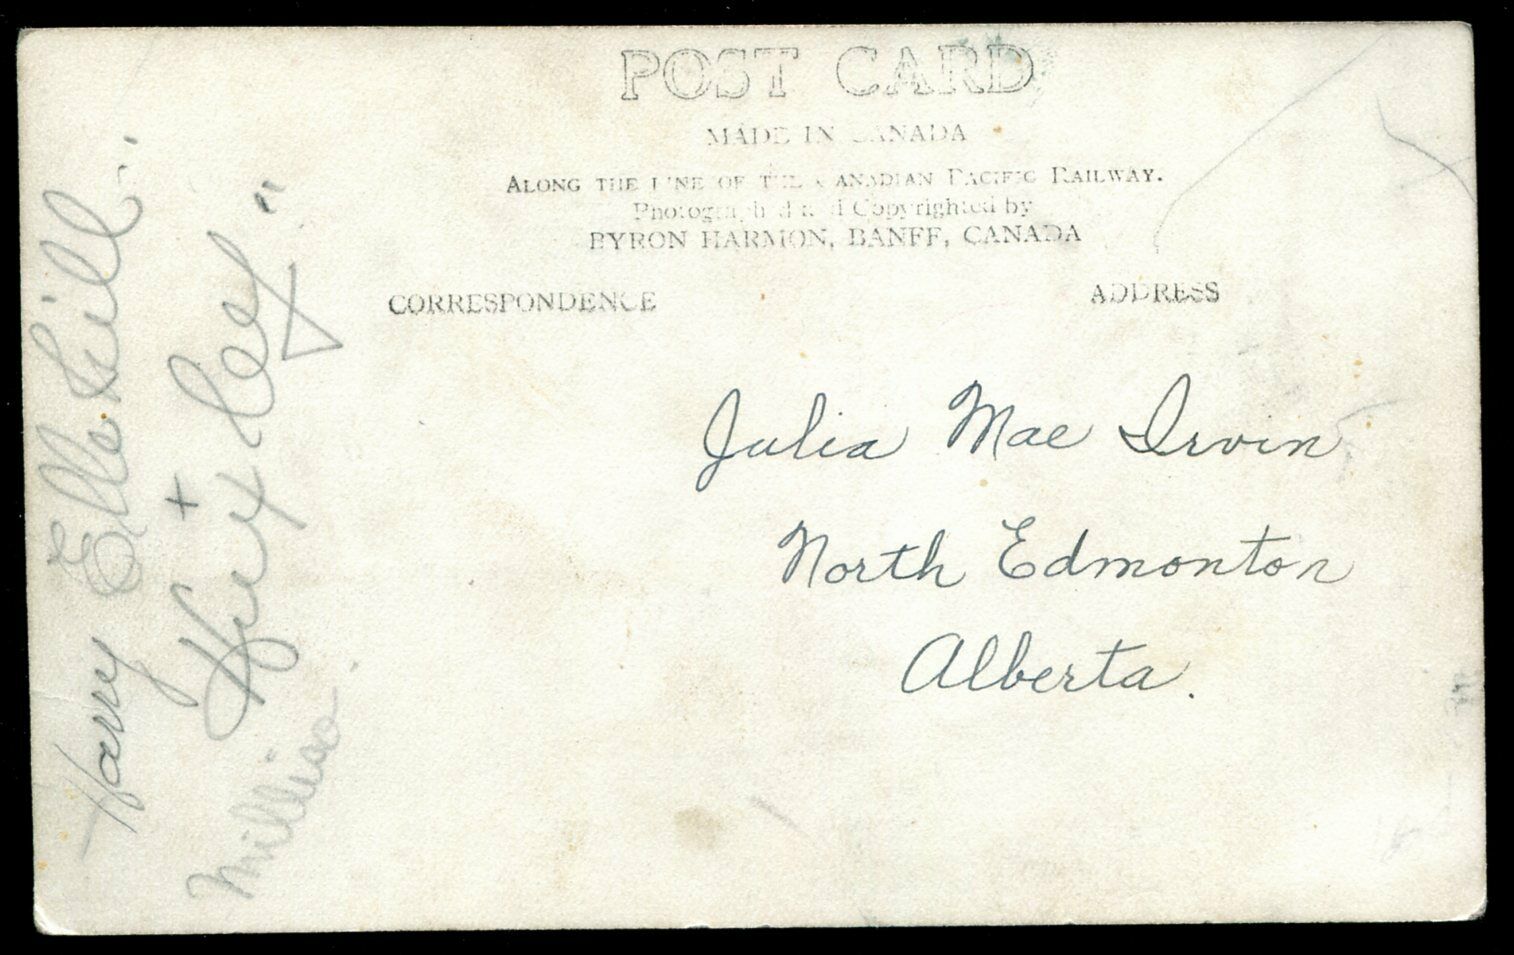 POST CARD
MADE IN CANADA
ALONG THE LINE OF THE CANADIAN PACIFIC RAILWAY.
Photographed and Copyrighted by
BYRON HARMON, BANFF, CANADA
CORRESPONDENCE
ADDRESS
Julia Mae Irvin
North Edmonton
Alberta.
Harry
+ Huxley"